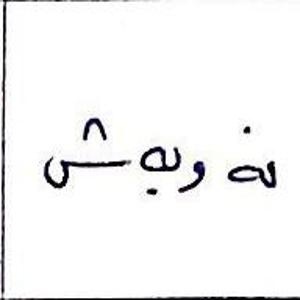 نەوبەش